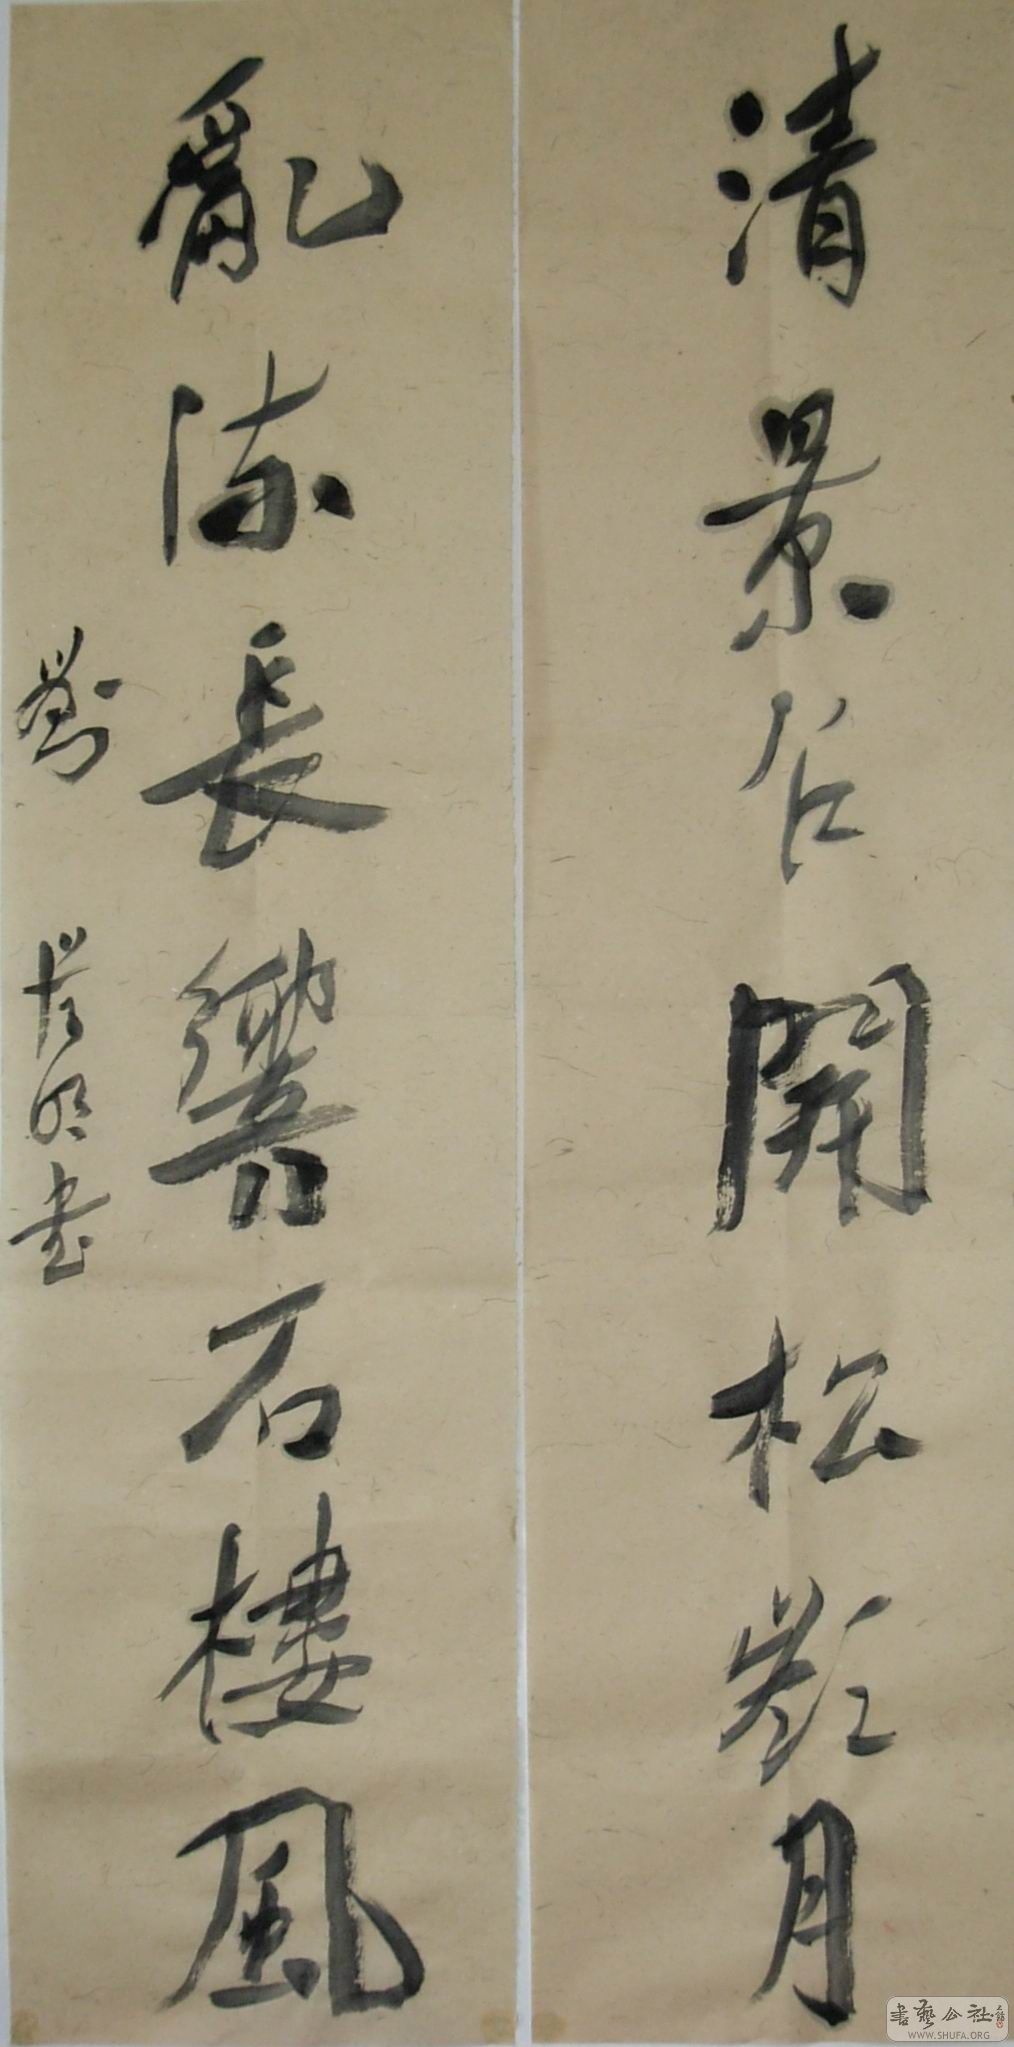 清景谷開松嶺月
亂流長響石樓風
劉
明書
書藝公社
WWW.SHUFA.ORG